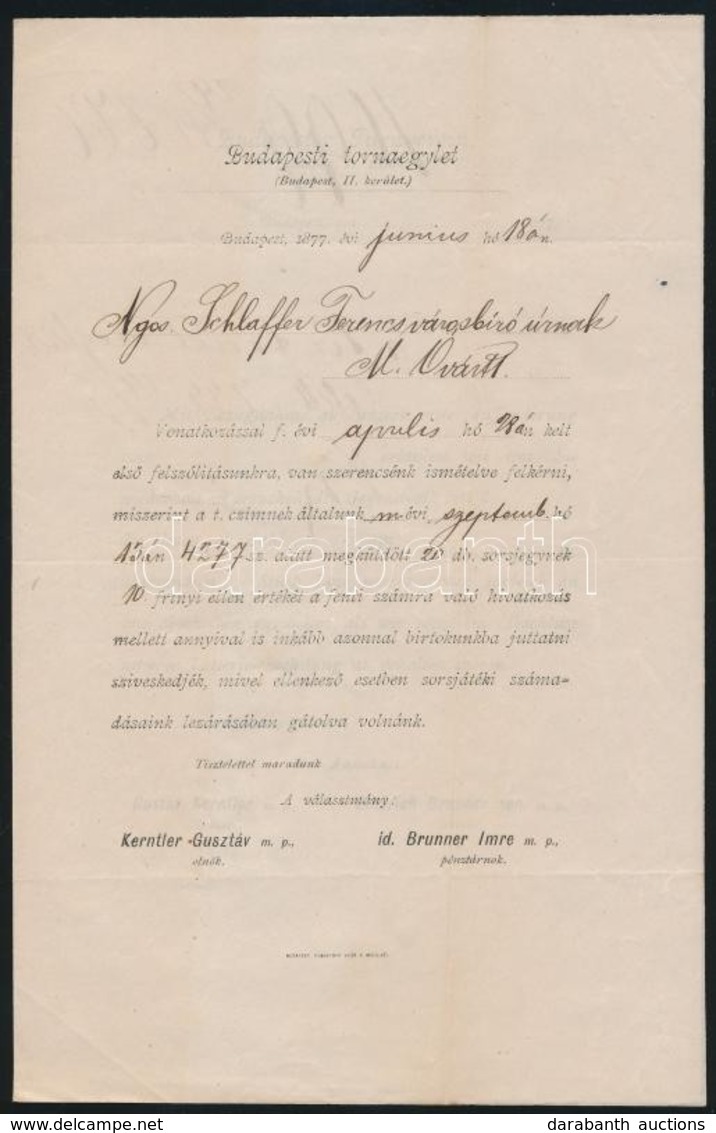 Budapesti tornaegylet
(Budapest, II. kerület.)
Budapest, 1877. évi junius hó 18án.
Ngos. Schlaffer Ferencs városbíró úrnak
M. Ovártt.
Vonatkozással f. évi aprilis hó 28án kelt
első felszólitásunkra, van szerencsénk ismételve felkérni,
miszerint a t. czimnek általunk m. évi szeptemb. hó
15án 4277 sz. alatt megküldött 20 db. sorsjegynek
10 frtnyi ellen értékét a fenti számra való hivatkozás
mellett annyival is inkább azonnal birtokunkba juttatni
sziveskedjék, mivel ellenkező esetben sorsjátéki száma-
dásaink lezárásában gátolva volnánk.
Tisztelettel maradunk
A választmány:
Kerntler Gusztáv m. p.,
elnök.
id. Brunner Imre m. p.,
pénztárnok.
darabanth
delcampe.net
darabanth auctions